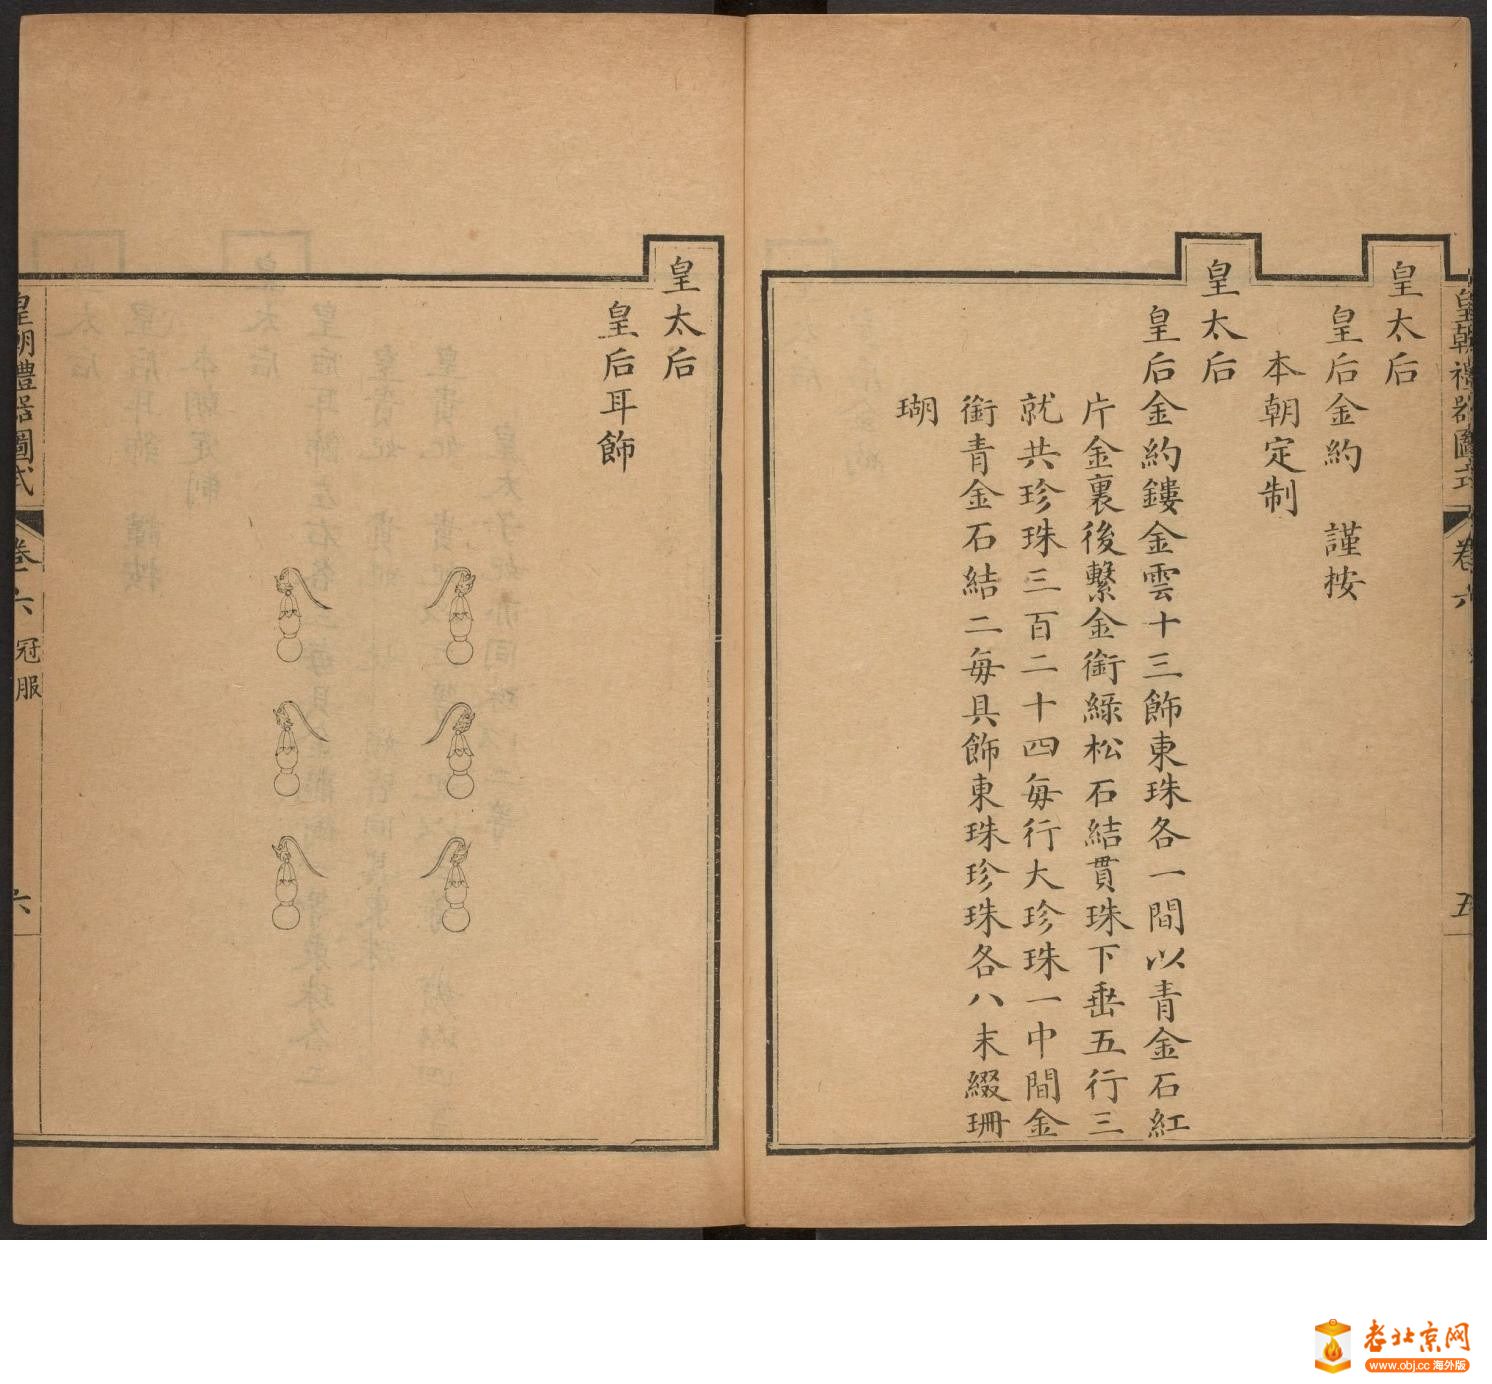 皇朝禮器圖式
卷六
五
皇太后
皇后金約　謹按
本朝定制
皇太后
皇后金約鏤金雲十三飾東珠各一間以青金石紅
片金裏後繫金銜綠松石結貫珠下垂五行三
就共珍珠三百二十四每行大珍珠一中間金
銜青金石結二每具飾東珠珍珠各八末綴珊
瑚
皇太后
皇后耳飾
皇朝禮器圖式
卷六
冠服
六
老北京网
www.obj.cc 海外版